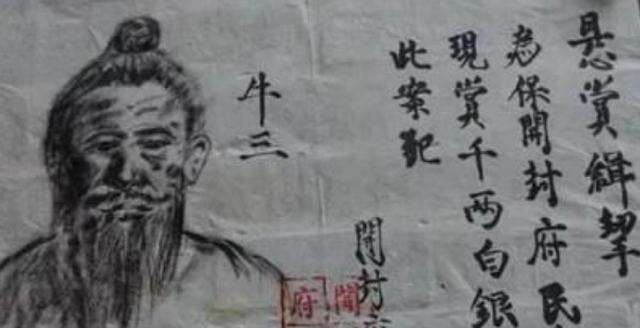 悬赏緝拏
為保開封府民
現賞千两白銀
此案犯
牛三
開封
開
府